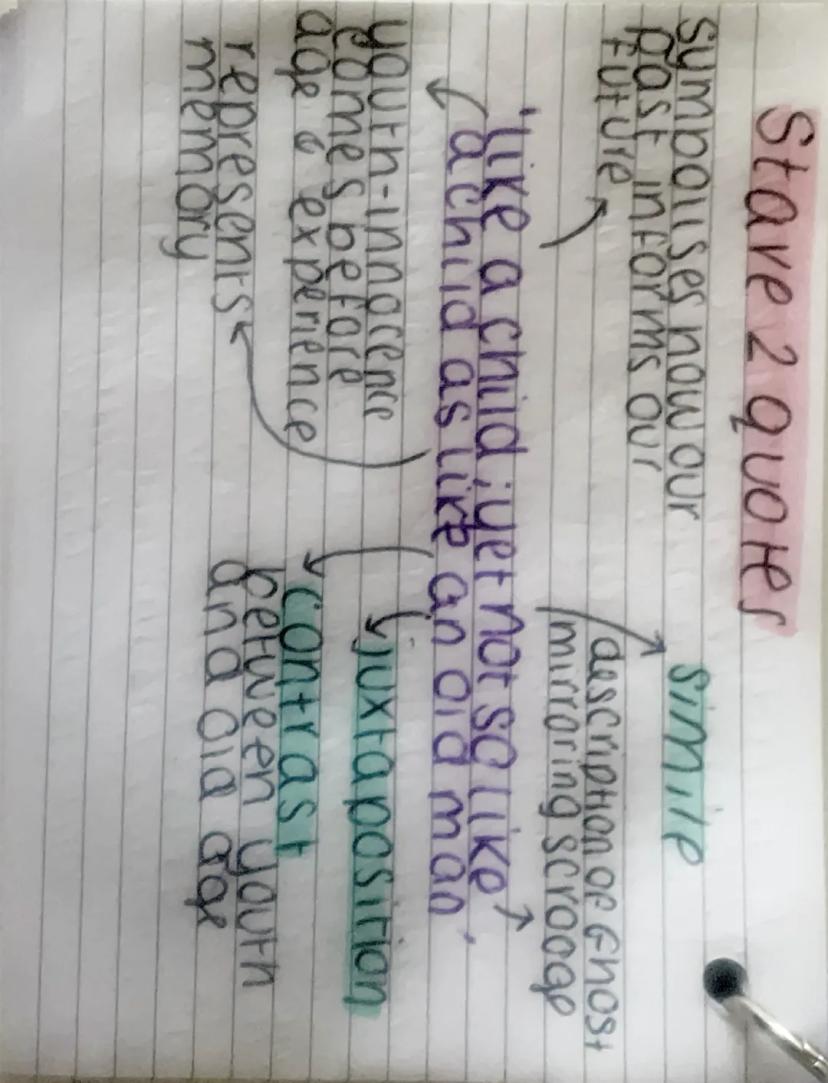 Stave 2 quotes
symbolises how our
past informs our
future
simile
description of Ghost
mirroring scrooge
'like a child; yet not so like
a child as like an old man'
youth-innocence
comes before
age & experience
represents
memory
juxtaposition
contrast
between youth
and old age